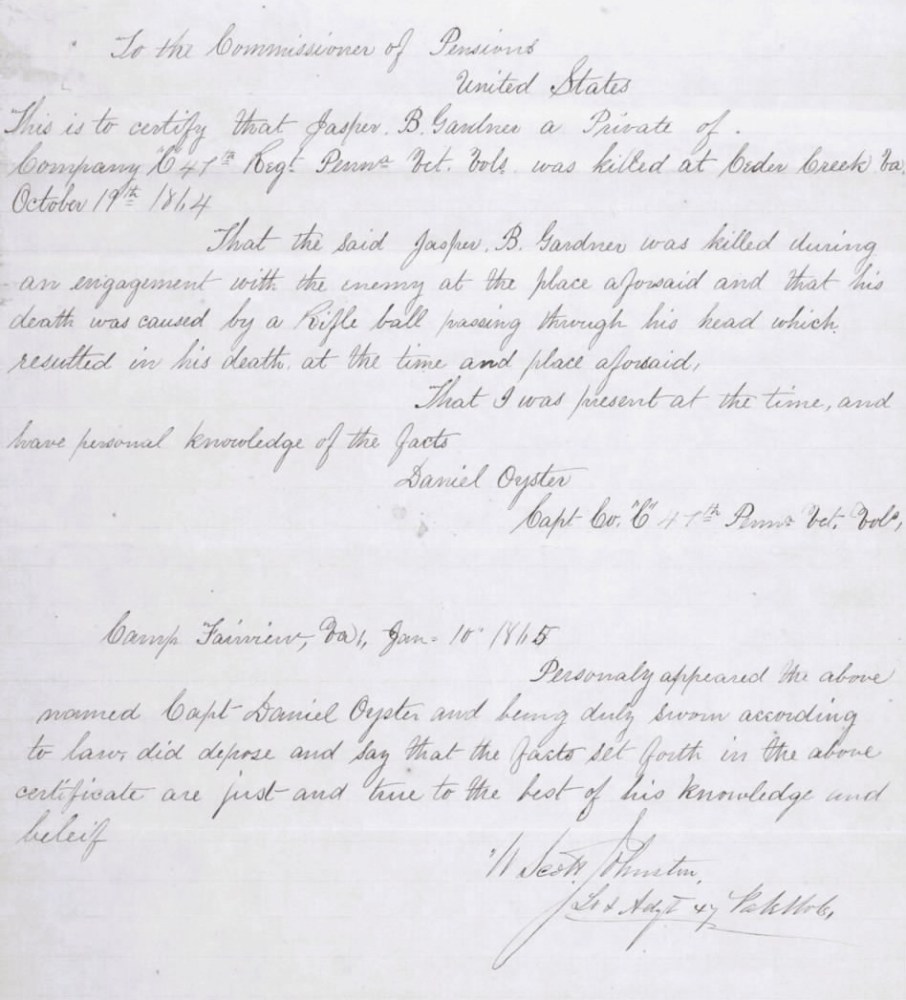 To the Commissioner of Pensions
United States
This is to certify that Jasper. B. Gardner a Private of.
Company "C" 47th Regt. Penna Vet. Vols. was killed at Ceder Creek Va.
October 19th 1864
That the said Jasper. B. Gardner was killed during
an engagement with the enemy at the place aforsaid and that his
death was caused by a Rifle ball passing through his head which.
resulted in his death. at the time and place aforsaid,
That I was present at the time, and
have personal knowledge of the facts
Daniel Oyster
Capt Co. "C" 47th Penna Vet. Vols,
Camp Fairview, Va, Jan- 10 1865
Personaly appeared the above
named Capt Daniel Oyster and being duly sworn according
to law, did depose and say that the facts set forth in the above
certificate are just and true to the best of his knowledge and
beleif
W Scott Johnston,
Lt & Adjt 47